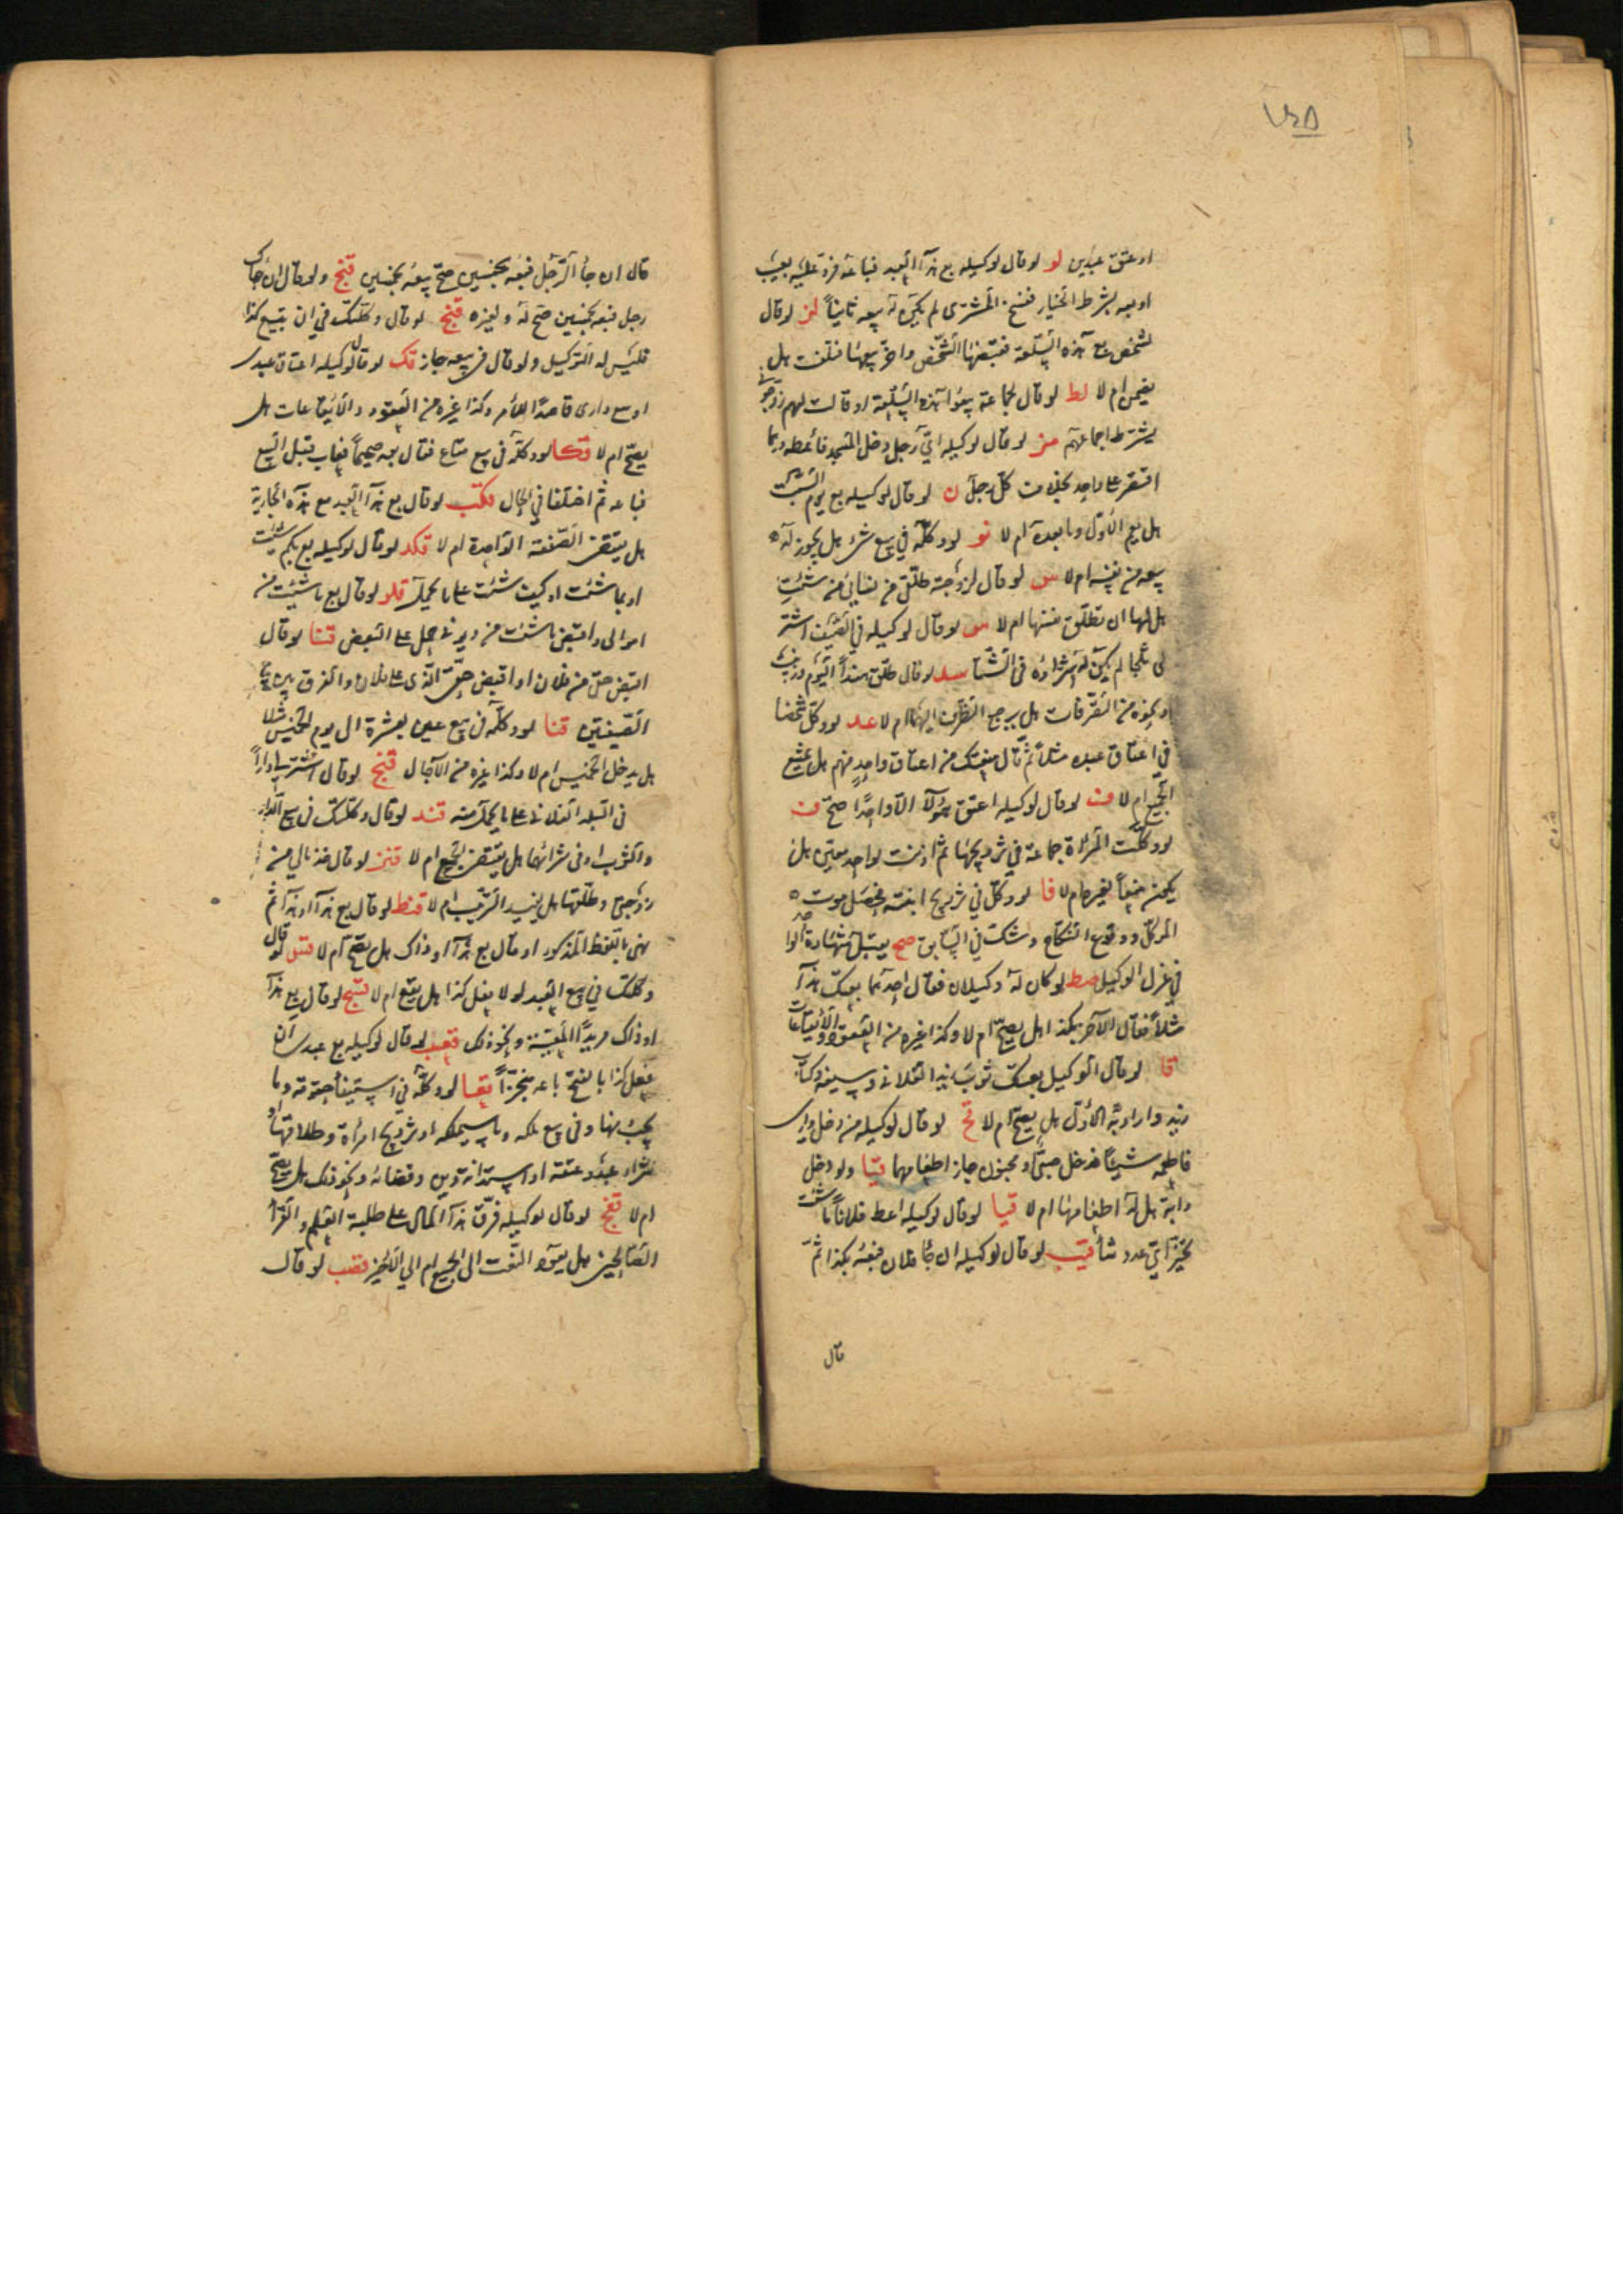 او عتق عبدين لو لو قال لوكيله بع هذا العبد فباعه فرد عليه بعيب
او بعه بشرط الخيار ففسخ المشترى لم يكن له بيعه ثانياً لز لو قال
لشخص بع هذه السلعة فقبضها الشخص واخر بيعها فتلفت هل
يضمن ام لا لط لو قال لجماعة بيعوا هذه السلعة او قالت لهم زوجونى
يشترط اجماعهم مز لو قال لوكيله اىّ رجل دخل المسجد فاعطه درهما
اقتصر على واحد بخلاف كل رجل ن لو قال لوكيله بع يوم السبت
هل يعم الاول وما بعده ام لا نو لو وكله فى بيع شئ هل يجوز له
بيعه من نفسه ام لا س لو قال لزوجته طلق من نسائى من شئت
هل لها ان تطلق نفسها ام لا لو قال لوكيله فى الصيف اشتر
لى ثلجا لم يكن له شراؤه فى الشتا سد لو قال طلق هنداً اليوم
ونحوه من التصرفات هل يرجع الظرف اليهما ام لا عد لو وكل شخصا
فى اعتاق عبده مثلا ثم قال منعتك من اعتاق واحد منهم هل يمتنع
الجميع ام لا لو قال لوكيله اعتق هؤلا الا واحداً صح ف
لو وكلت المرأة جماعة فى تزويجها ثم اذنت لواحد معين هل
يكون منعاً لغيره ام لا فا لو وكل فى تزويج ابنته فحصل موت
الموكل ووقوع النكاح وشك فى السابق صح يقبل شهادة
فى عزل الوكيل صط لو كان له وكيلان فقال احدهما بعتك هذا
مثلاً فقال الآخر بكذا هل يصح ام لا وكذا غيره من العقود والايقاعات
قا لو قال الوكيل بعتك ثوب زيد الفلانى وسيفه وكتاب
زيد واراد به الاول هل يصح ام لا قح لو قال لوكيله من دخل دارى
فاطعمه شيئاً فدخل صبى او مجنون جاز اطعامهما قيا ولو دخل
دابة هل له اطعامها ام لا قيا لو قال لوكيله اعط فلاناً ما شئت
تخير اىّ عدد شأ قيب لو قال لوكيله ان جأ فلان فبعه بكذا ثم
قال
قال ان جأ الرجل فبعه بخمسين صح بيعه بخمسين قيج ولو قال ان جاك
رجل فبعه بخمسين صح له ولغيره قيح لو قال وكلتك فى ان تبيع كذا
فليس له التوكيل ولو قال فى بيعه جاز قك لو قال لوكيله اعتاق عبدى
او بيع دارى قاصداً للامر وكذا غيره من العقود والايقاعات هل
يصح ام لا قكا لو وكله فى بيع متاع فقال بعه صحيحاً فعاب قبل البيع
فباعه ثم اختلفا فى الحال قكب لو قال بع هذا العبد مع هذه الجارية
هل يقتضى الصفقة الواحدة ام لا قكد لو قال لوكيله بع بكم شئت
او بما شئت او كيف شئت على ما يحمل قلو لو قال بع ما شئت من
اموالى واقبض ما شئت من ديونى حمل على البعض قنا لو قال
اقبض حقى من فلان او اقبض حقى الذى على فلان والفرق بين
الصيغتين قنا لو وكله فى بيع عين بعشرة الى يوم الخميس مثلا
هل يدخل الخميس ام لا وكذا غيره من الآجال قنج لو قال اشتر لى داراً
فى البلد الفلانى على ما يحمل منه قند لو قال وكلتك فى بيع الدار
والثوب او فى شرائهما هل يقتضى الجميع ام لا قنز لو قال خذ مالى من
زوجتى وطلقها هل يفيد الترتيب ام لا قنط لو قال بع هذا او هذا ثم
نهى باللفظ المذكور او قال بع هذا او ذاك هل يصح ام لا قسو لو قال
وكلتك فى بيع العبد لو لا يفعل كذا هل يقع ام لا قسح لو قال بع هذا
او ذاك مريداً المعينة ونحو ذلك قعب لو قال لوكيله بع عبدى ان
يفعل كذا بالفتح باعه منجزاً لو وكله فى استيفأ حقوقه وما
يجب منها وفى بيع ملكه وما سيملكه او تزويج امرأة وطلاقها او
شراء عبد وعتقه او استدانة دين وقضائه ونحو ذلك هل يصح
ام لا قفح لو قال لوكيله فرق هذا المال على طلبة العلم والقرأ
الصالحين هل يعود النعت الى الجميع ام الى الاخير قصب لو قال